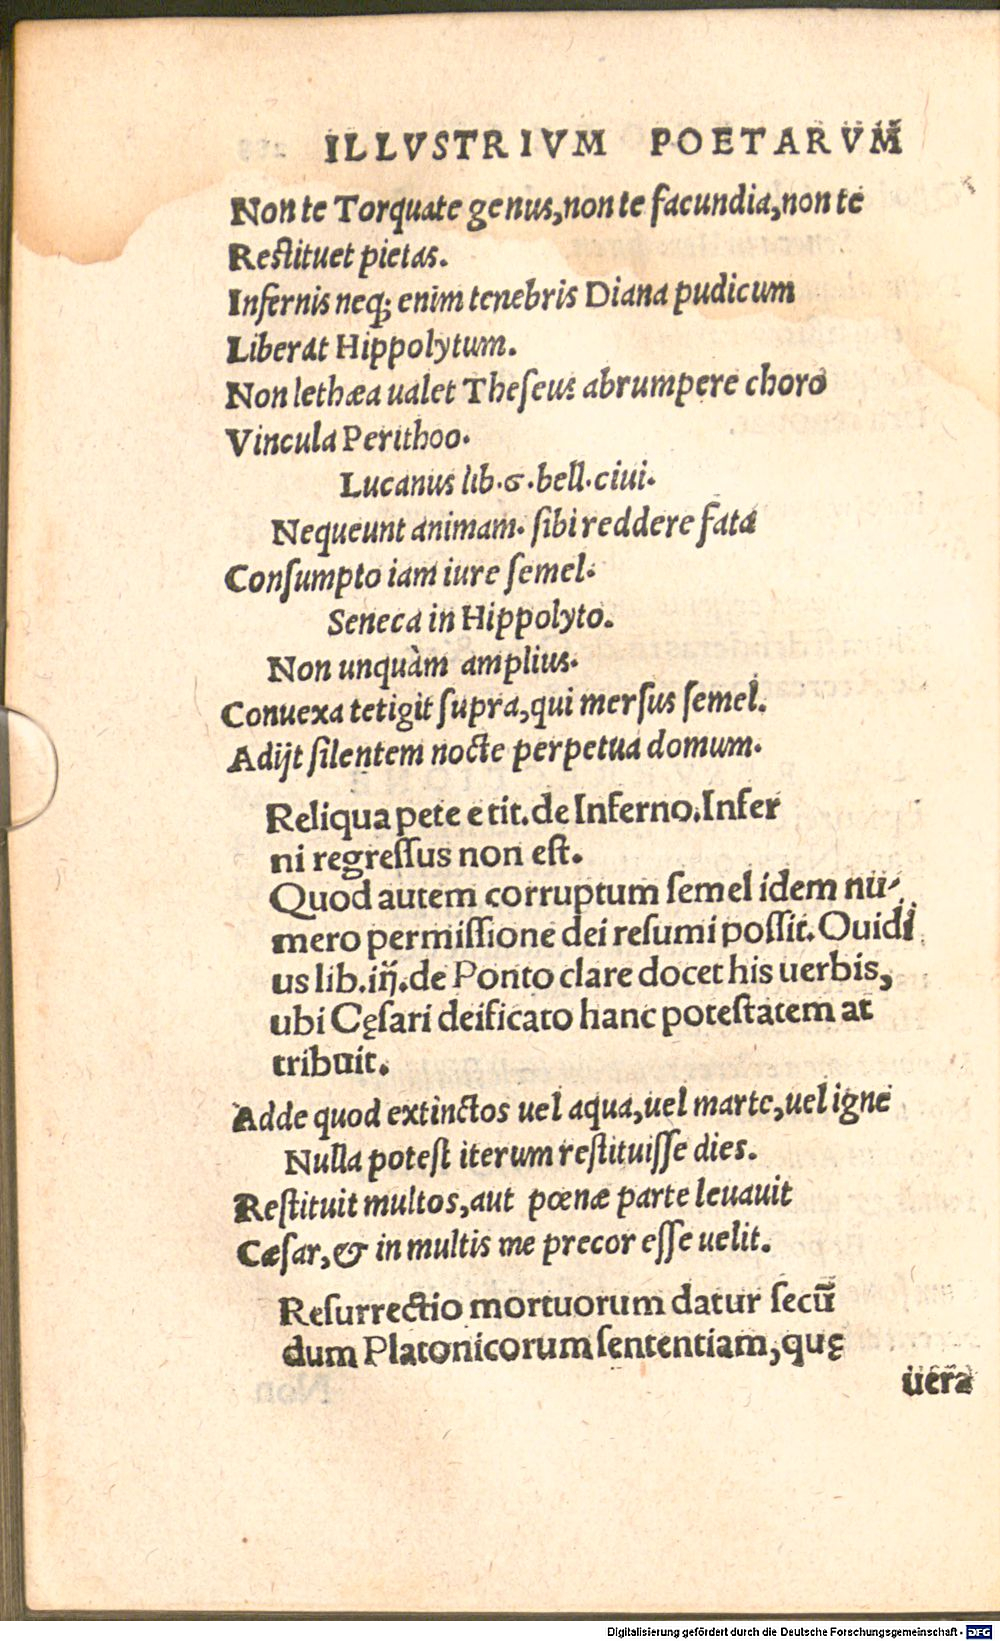 ILLVSTRIVM POETARVM
Non te Torquate genus, non te facundia, non te
Restituet pietas.
Infernis neq; enim tenebris Diana pudicum
Liberat Hippolytum.
Non lethæa ualet Theseus abrumpere choro
Vincula Perithoo.
Lucanus lib. 6. bell. ciui.
Nequeunt animam. sibi reddere fata
Consumpto iam iure semel.
Seneca in Hippolyto.
Non unquàm amplius.
Conuexa tetigit supra, qui mersus semel.
Adijt silentem nocte perpetua domum.
Reliqua pete e tit. de Inferno. Infer
ni regressus non est.
Quod autem corruptum semel idem nu-
mero permissione dei resumi possit. Ouidi
us lib. iij. de Ponto clare docet his uerbis,
ubi Cęsari deificato hanc potestatem at
tribuit.
Adde quod extinctos uel aqua, uel marte, uel igne
Nulla potest iterum restituisse dies.
Restituit multos, aut pœnæ parte leuauit
Cæsar, & in multis me precor esse uelit.
Resurrectio mortuorum datur secū
dum Platonicorum sententiam, quę
uera
Digitalisierung gefördert durch die Deutsche Forschungsgemeinschaft - DFG